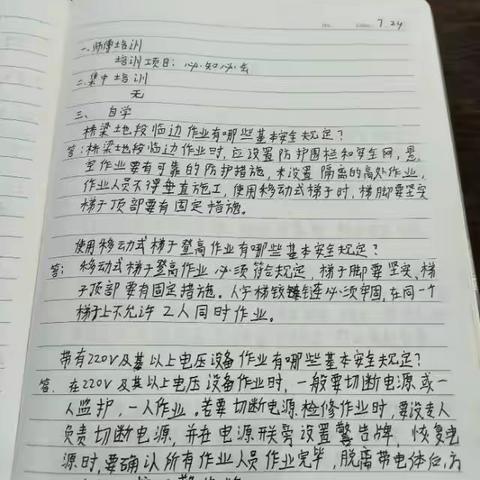 7.24
一.师傅培训
培训项目：必知必会
二.集中培训
无
三、自学
桥梁地段临边作业有哪些基本安全规定？
答：桥梁地段临边作业时，应设置防护围栏和安全网，悬
空作业要有可靠的防护措施，未设置隔离的高处作业，
作业人员不得垂直施工，使用移动式梯子时，梯脚要坚实
梯子顶部要有固定措施。
使用移动式梯子登高作业有哪些基本安全规定？
答：移动式梯子登高作业必须符合规定，梯子脚要坚实、梯
子顶部要有固定措施。人字梯铰链必须牢固，在同一个
梯子上不允许2人同时作业。
带有220V及其以上电压设备作业有哪些基本安全规定？
答.在220V及其以上电压设备作业时，一般要切断电源或一
人监护，一人作业。若要切断电源检修作业时，要设专人
负责切断电源，并在电源开关旁设置警告牌，恢复电
源时，要确认所有作业人员作业完毕，脱离带电体后，方